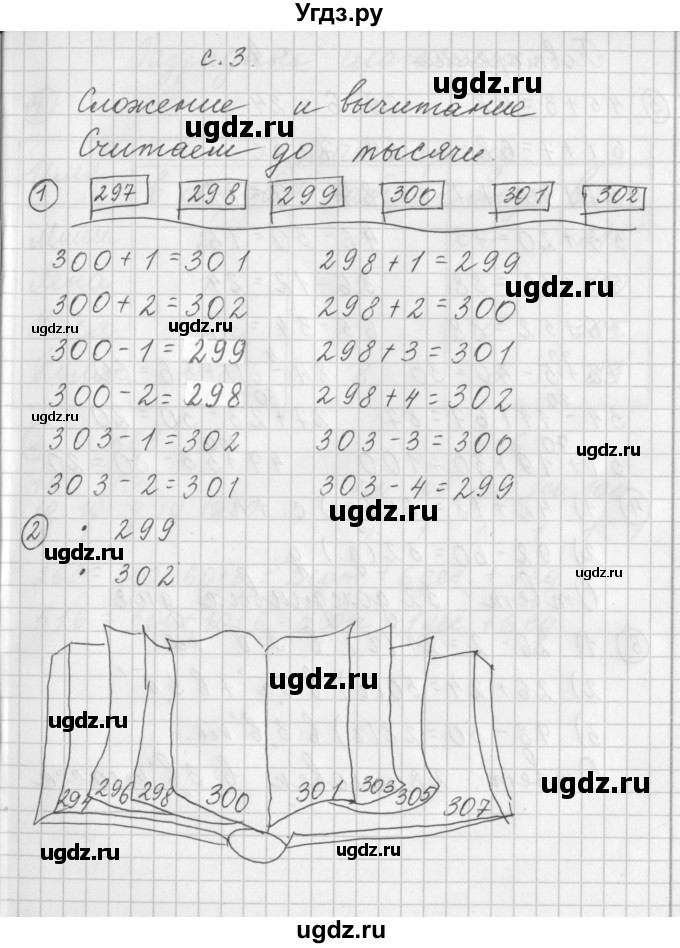 Угдз.ру
с. 3.
ugdz.ru
Сложение и вычитание
ugdz.ru
Считаем до тысячи.
① 297 298 299 300 301 302
300 + 1 = 301 298 + 1 = 299
ugdz.ru
300 + 2 = 302 298 + 2 = 300
ugdz.ru ugdz.ru
300 - 1 = 299 298 + 3 = 301
300 - 2 = 298 298 + 4 = 302
ugdz.ru
303 - 1 = 302 303 - 3 = 300
ugdz.ru
303 - 2 = 301 303 - 4 = 299
ugdz.ru
② · 299
ugdz.ru
· 302
ugdz.ru
ugdz.ru
ugdz.ru
294 296 298 300 301 303 305 307
ugdz.ru
ugdz.ru ugdz.ru
Страница загружена с сайта Угдз.ру